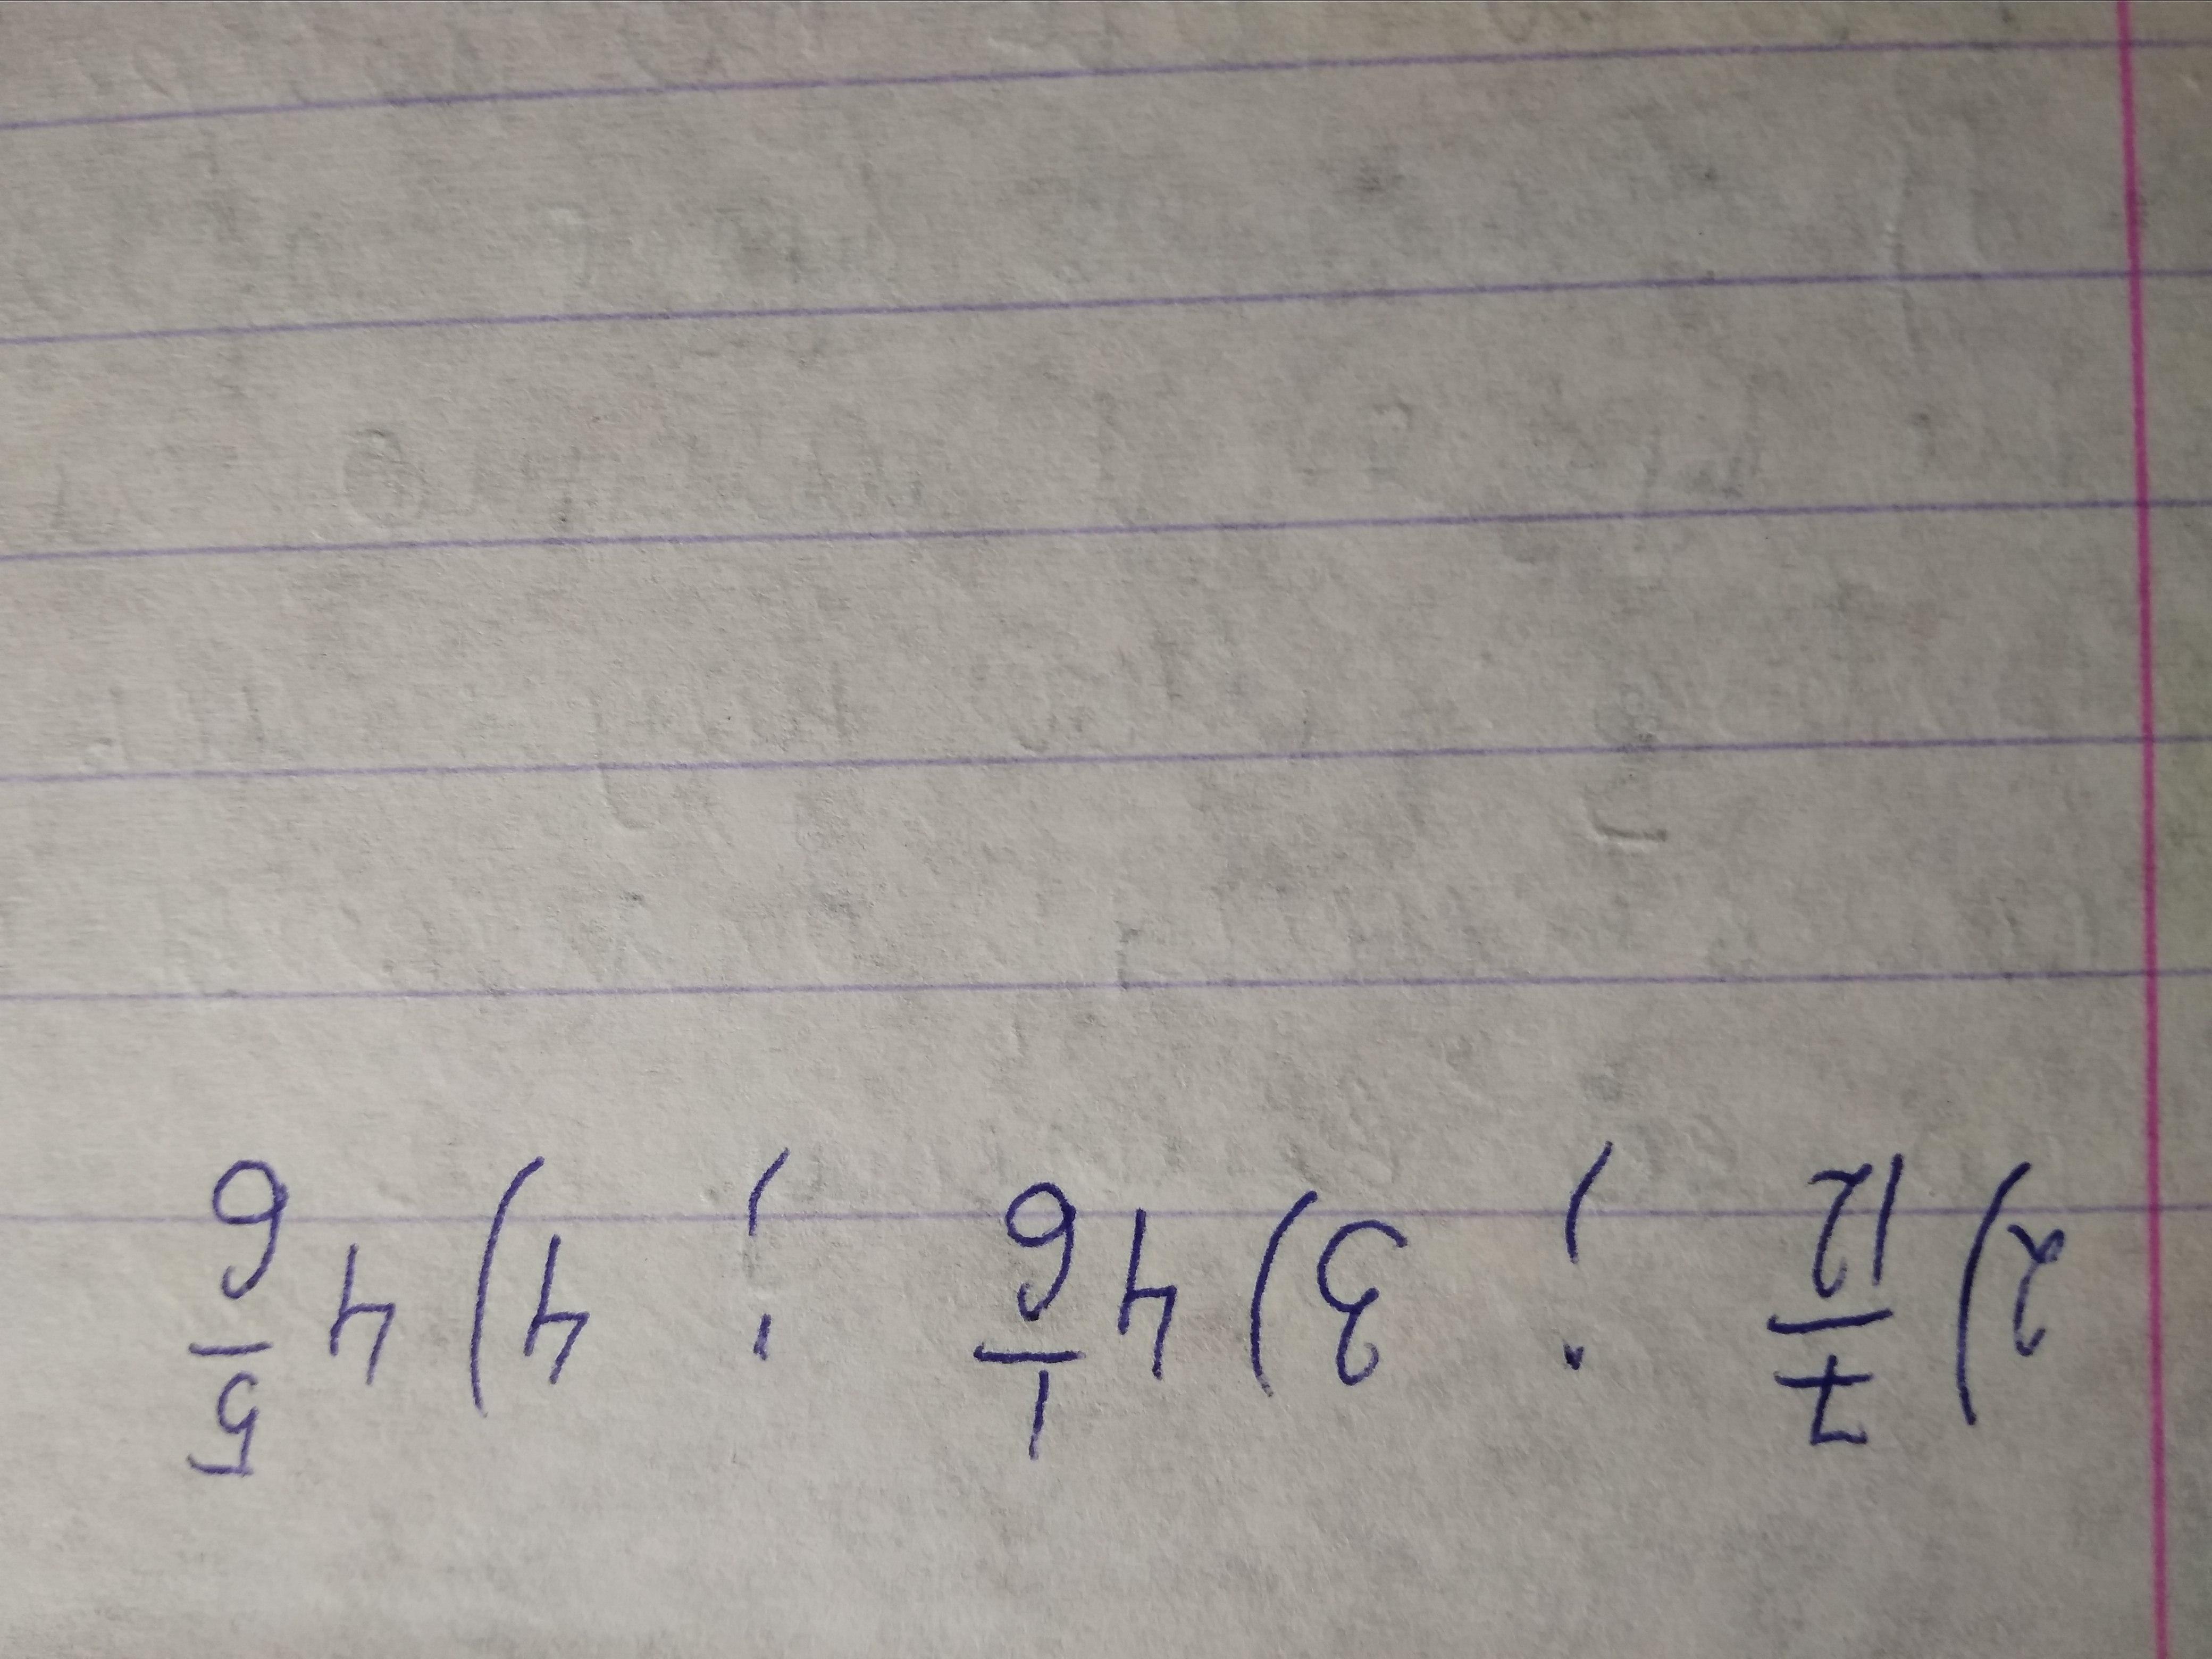 2) 7/12 ; 3) 4 1/6 ; 4) 4 5/6